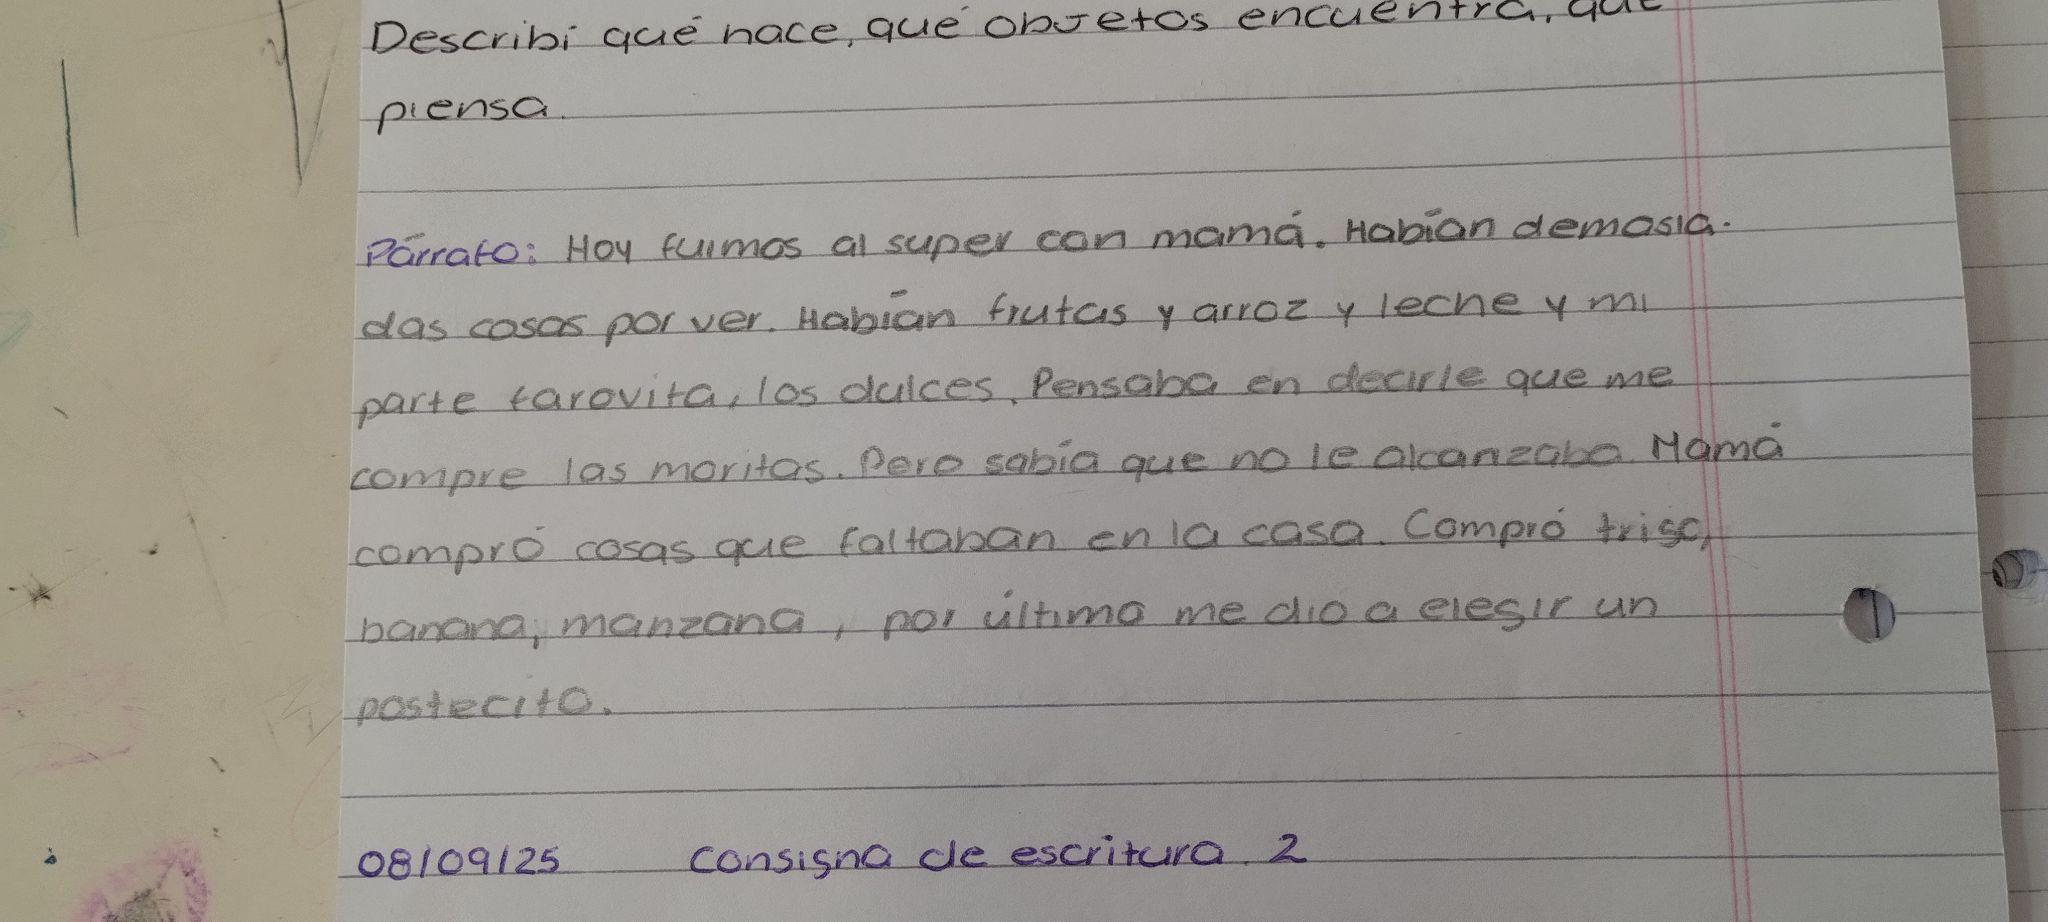 Describi qué hace, qué objetos encuentra, qué
piensa.
Párrafo: Hoy fuimos al super con mamá. Habían demasia-
das cosas por ver. Habían frutas y arroz y leche y mi
parte farovita, los dulces. Pensaba en decirle que me
compre las moritas. Pero sabía que no le alcanzaba. Mamá
compró cosas que faltaban en la casa. Compró
banana, manzana, por último me dio a elegir un
postecito.
08/09/25 Consigna de escritura. 2